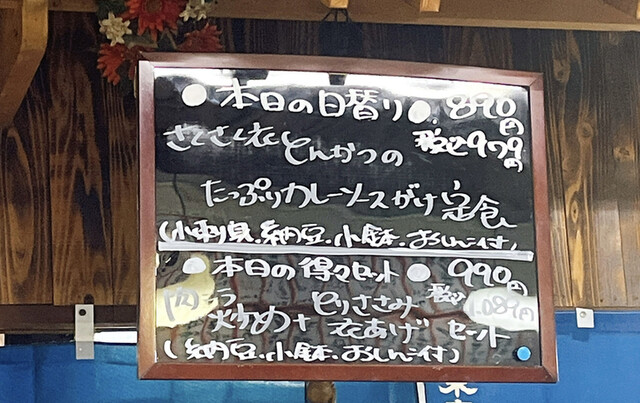 ●本日の日替り● 890円
さくさく衣とんかつの 税込979円
たっぷりカレーソースがけ定食
(小刺身.納豆.小鉢.おしんこ付)
●本日の得々セット● 990円
税込1.089円
肉うどん
炒め+とりささみ
衣あげ セット
(納豆.小鉢.おしんこ付)